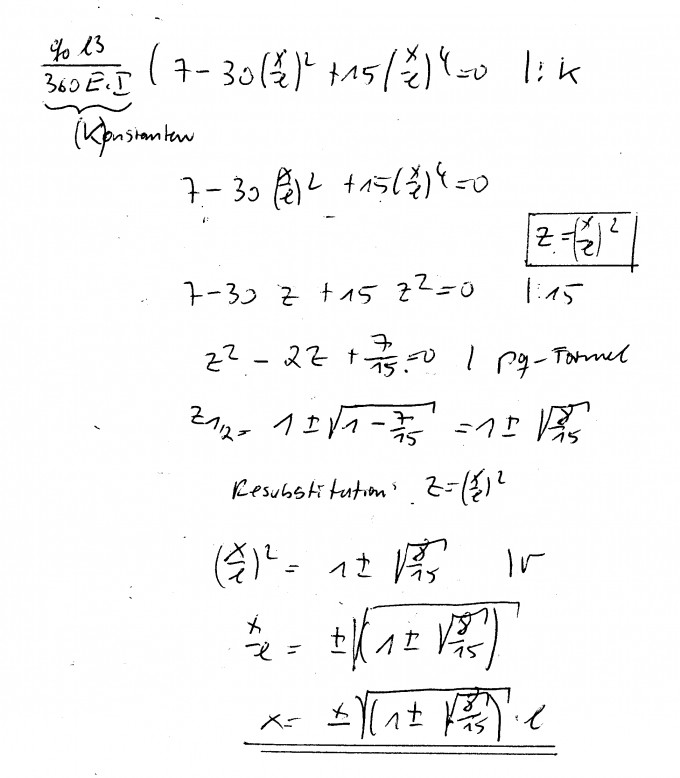 q₀ l3 / 360 E·I ( 7 - 30 (x/l)² + 15 (x/l)⁴ = 0 |: K
(K)onstanten
7 - 30 (x/l)² + 15 (x/l)⁴ = 0
z = (x/l)²
7 - 30 z + 15 z² = 0 |: 15
z² - 2z + 7/15 = 0 | pq-Formel
z1/2 = 1 ± √(1 - 7/15) = 1 ± √(8/15)
Resubstitution: z = (x/l)²
(x/l)² = 1 ± √(8/15) |√
x/l = ± √(1 ± √(8/15))
x = ± √(1 ± √(8/15)) · l